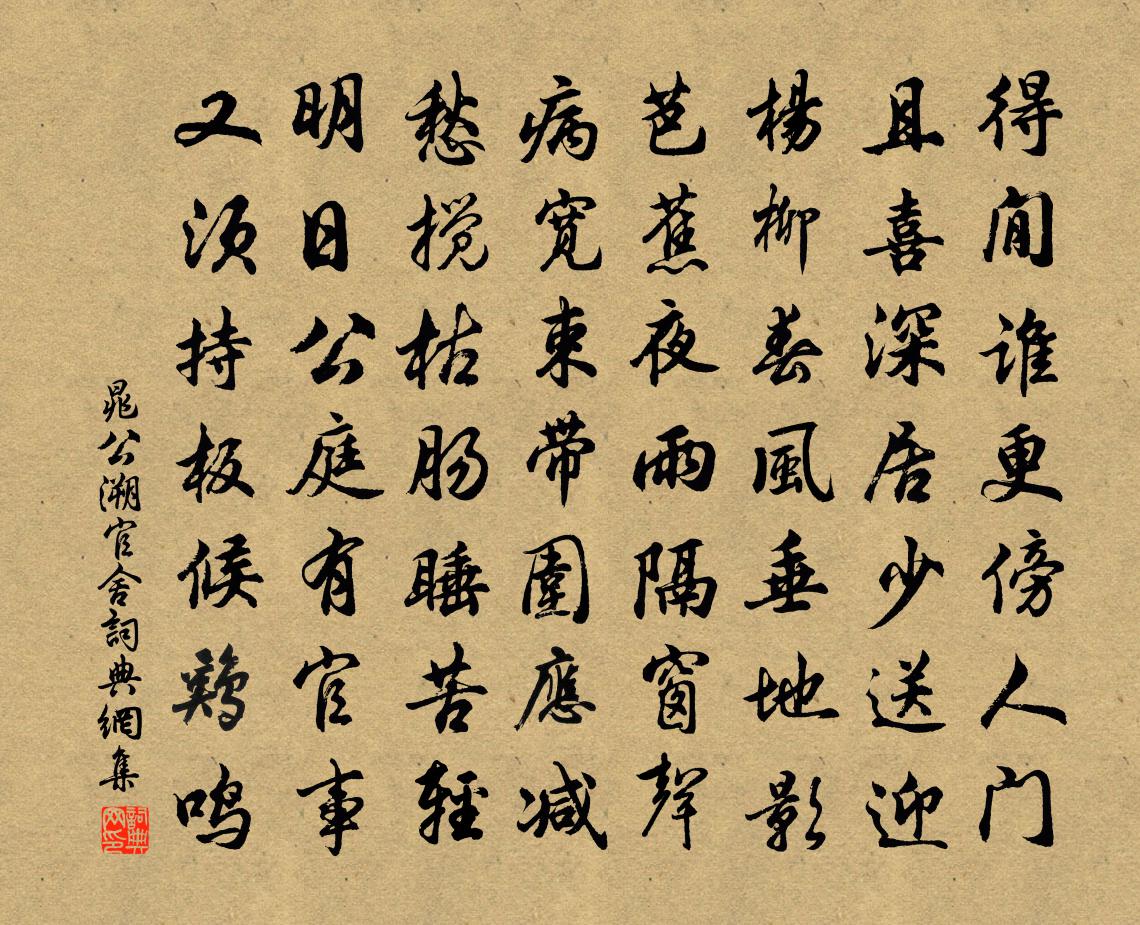 得閒誰更傍人門
且喜深居少送迎
楊柳春風垂地影
芭蕉夜雨隔窗聲
病寬束帶圍應減
愁攪枯腸睡苦輕
明日公庭有官事
又須持板候鷄鳴
晁公溯官舍詞典網集
詞典網印